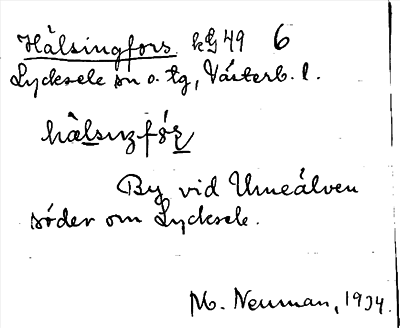 Hälsingfors kG 49 6
Lycksele sn o. tg, Västerb. l.
hälsıŋfór
By vid Umeälven
söder om Lycksele.
M. Neuman, 1934.